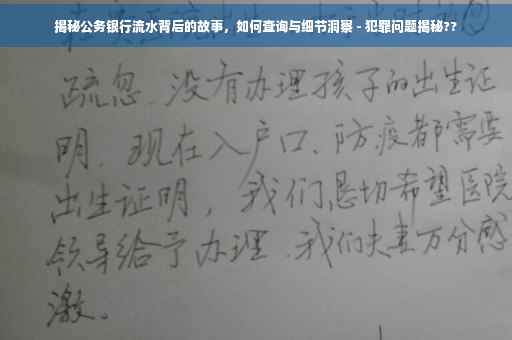 揭秘公务银行流水背后的故事，如何查询与细节洞察 - 犯罪问题揭秘??
疏忽、没有办理孩子的出生证
明、现在入户口、防疫都需要
出生证明，我们恳切希望医院
领导给予办理、我们夫妻万分感
激。